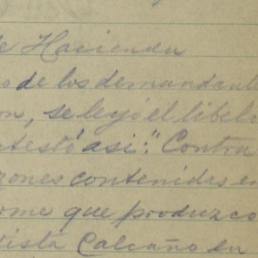 de Hacienda
o de los demandante
on, se leyó el libelo
ntestó así: "Contra
zones contenidas en
orme que produzco
tista Calcaño en